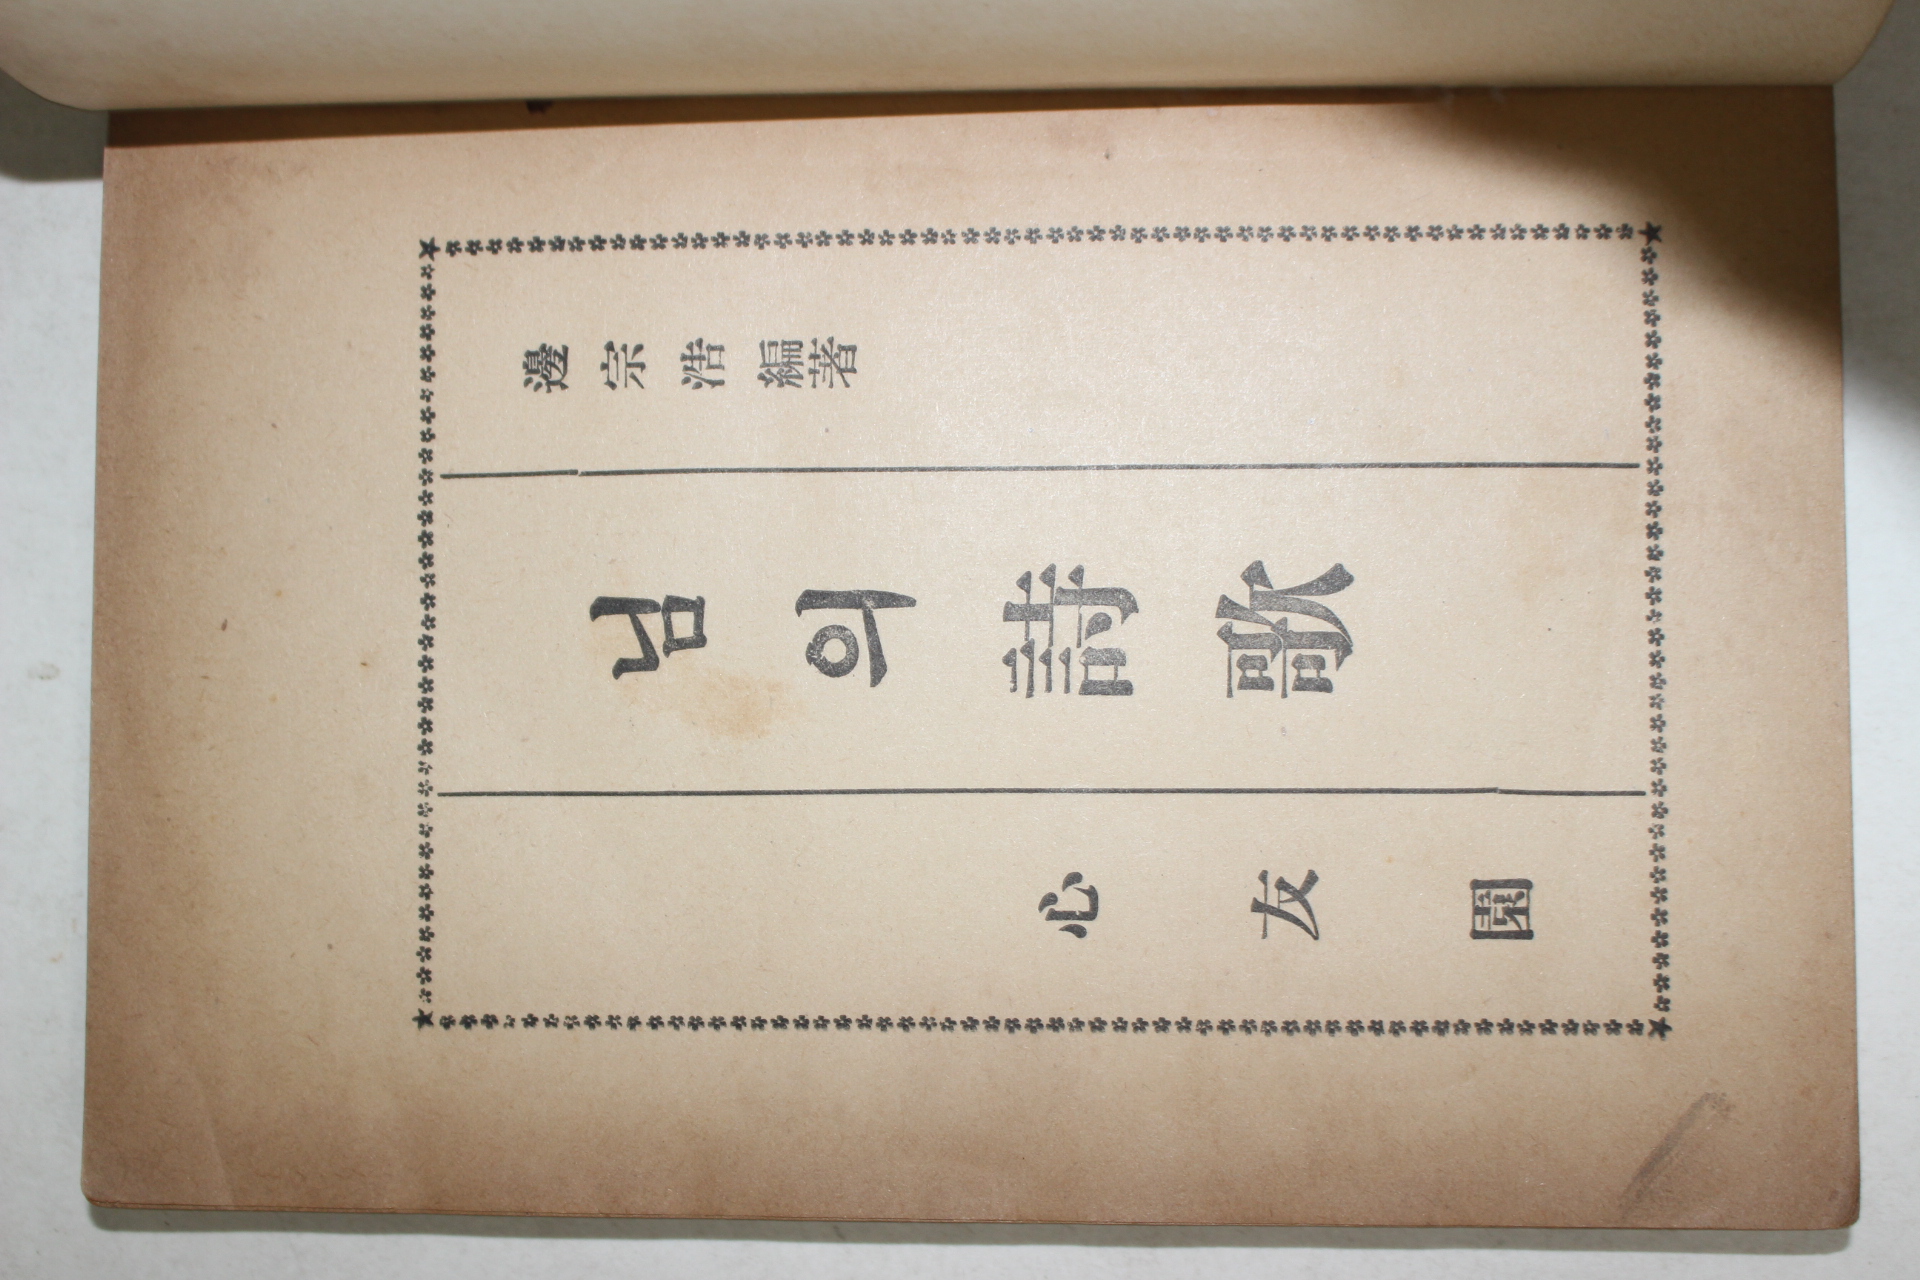 邊宗浩編著
님의詩歌
心友園